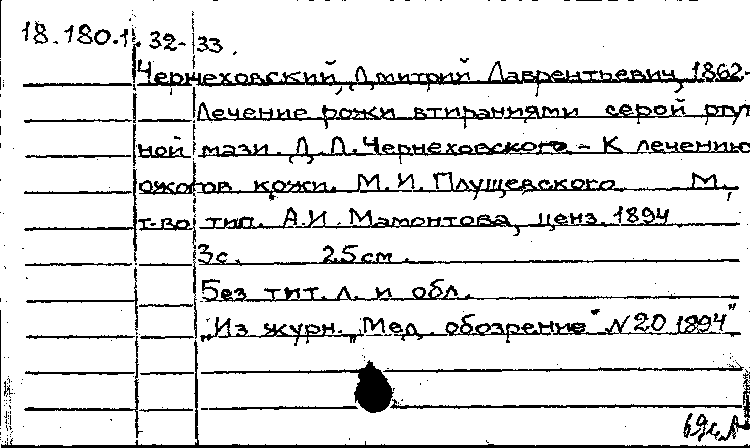 18.180.1.32-33.
Чернеховский, Дмитрий Лаврентьевич, 1862-
Лечение рожи втираниями серой ртут
ной мази. Д.Л.Чернеховского - К лечению
ожогов кожи. М.И. Плущевского М.,
т-во тип. А.И. Мамонтова, ценз. 1894
3с. 25см.
Без тит. л. и обл.
"Из журн. "Мед. обозрение" N20 1894"